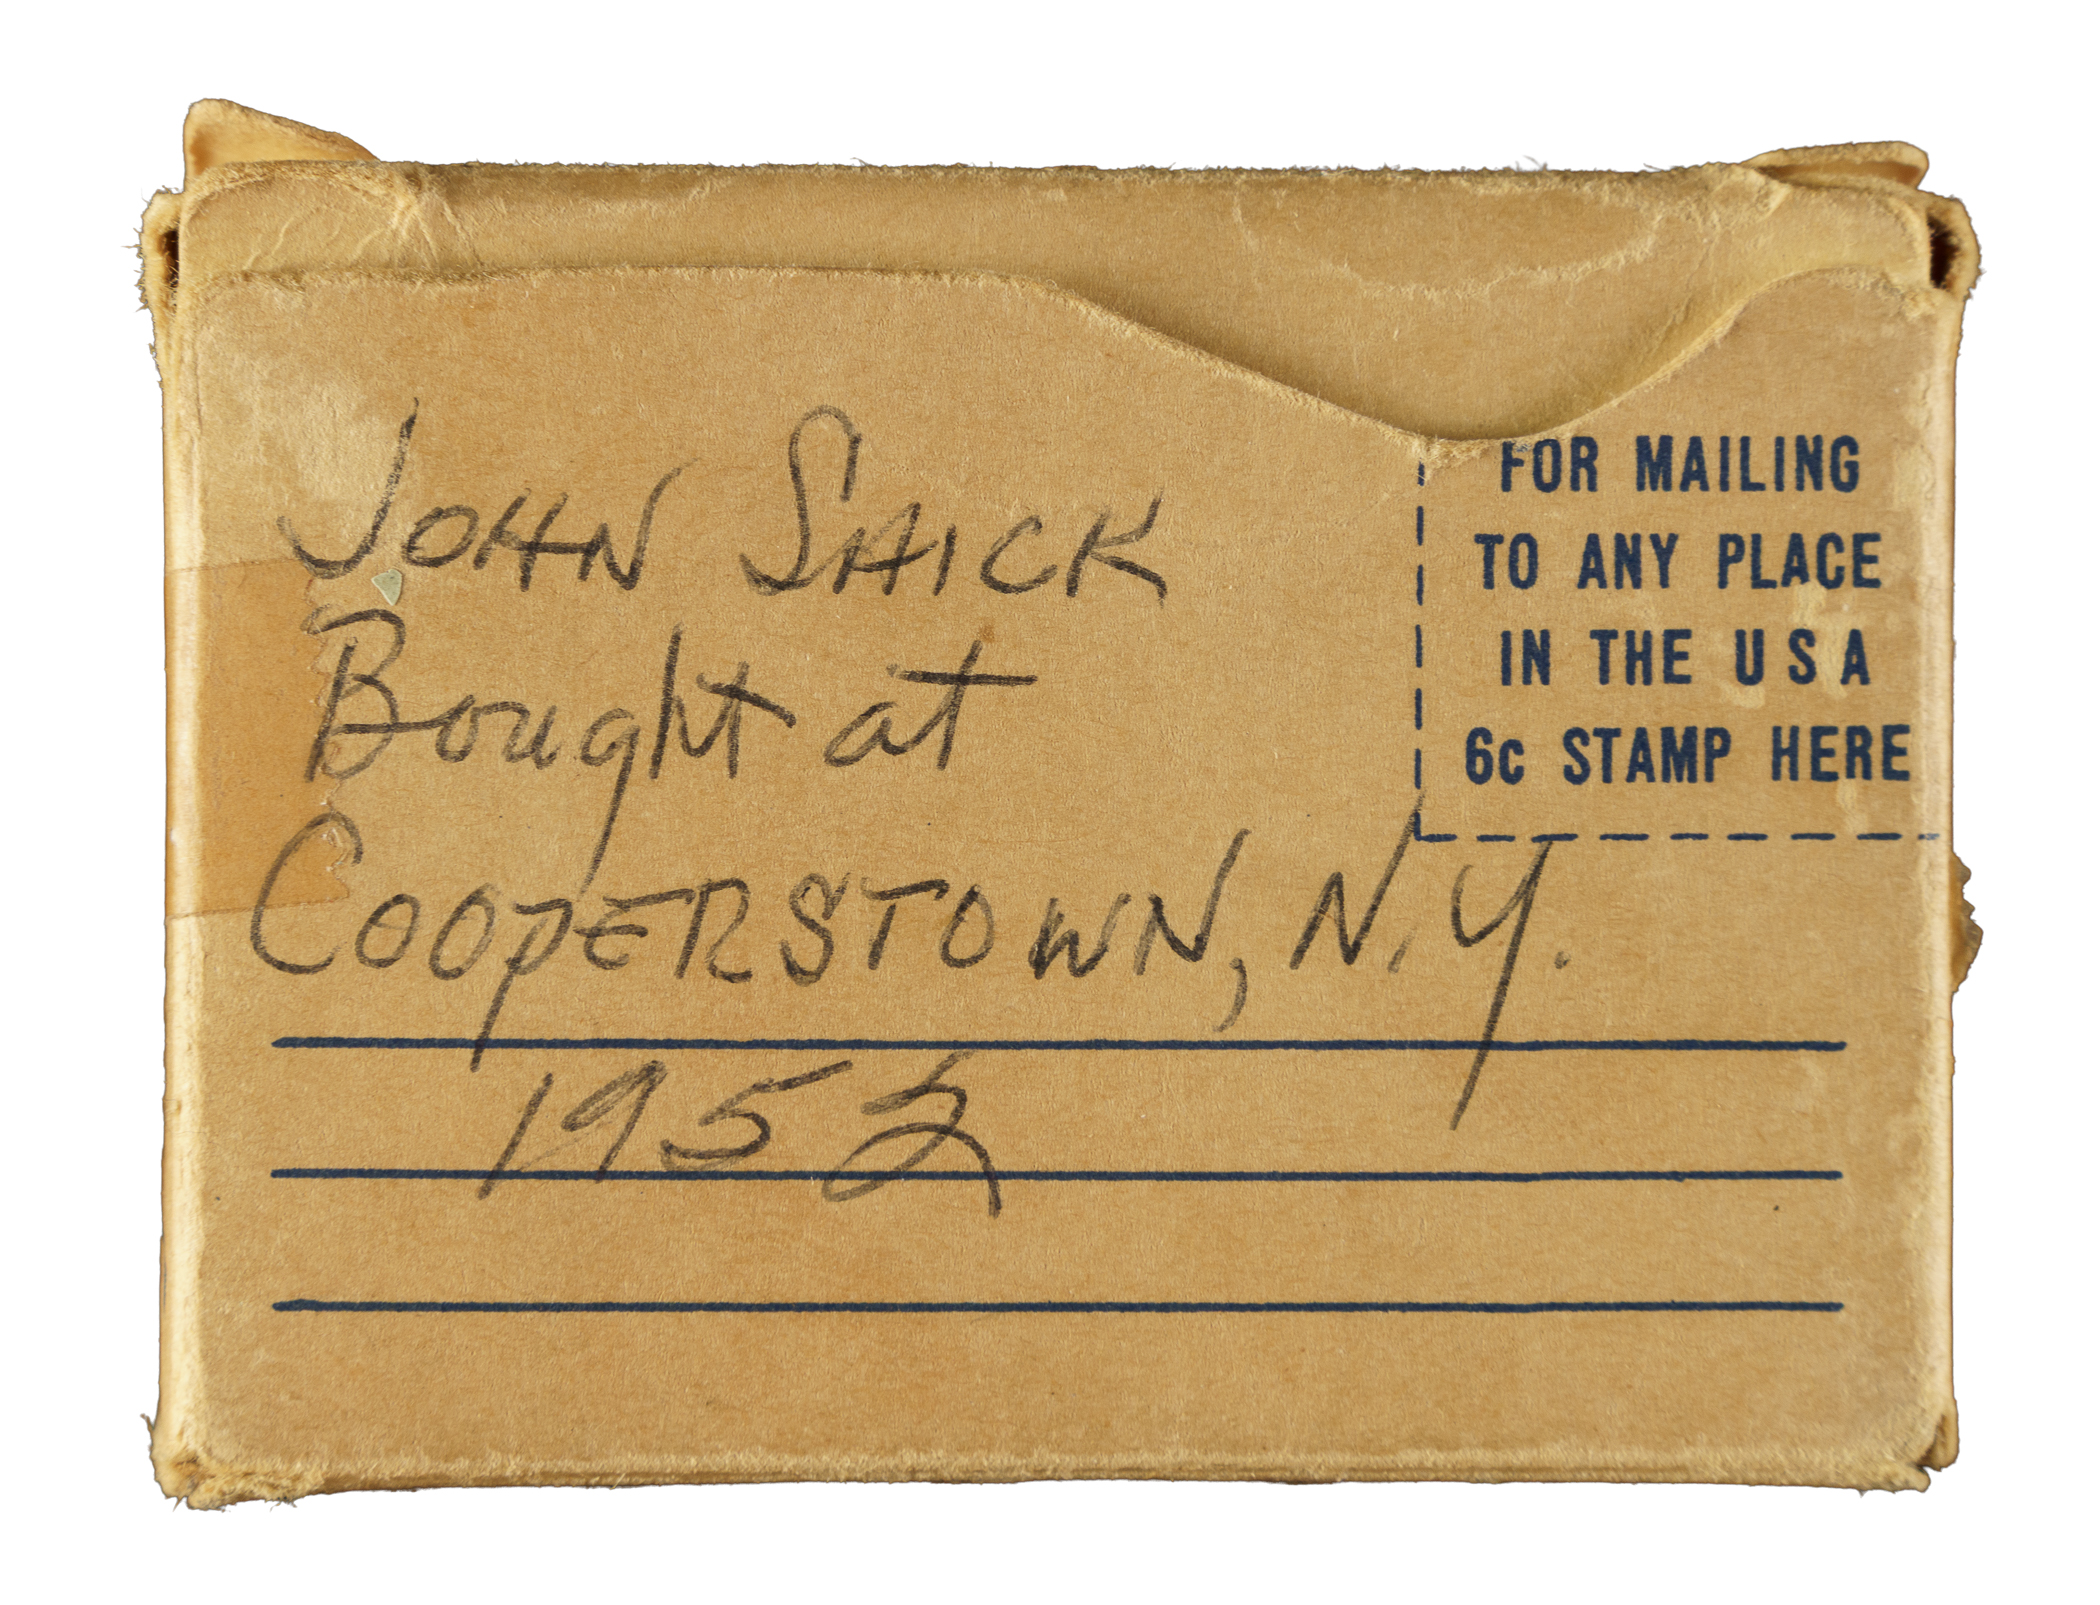 JOHN SAICK
Bought at
COOPERSTOWN, N.Y.
1952
FOR MAILING
TO ANY PLACE
IN THE U S A
6c STAMP HERE